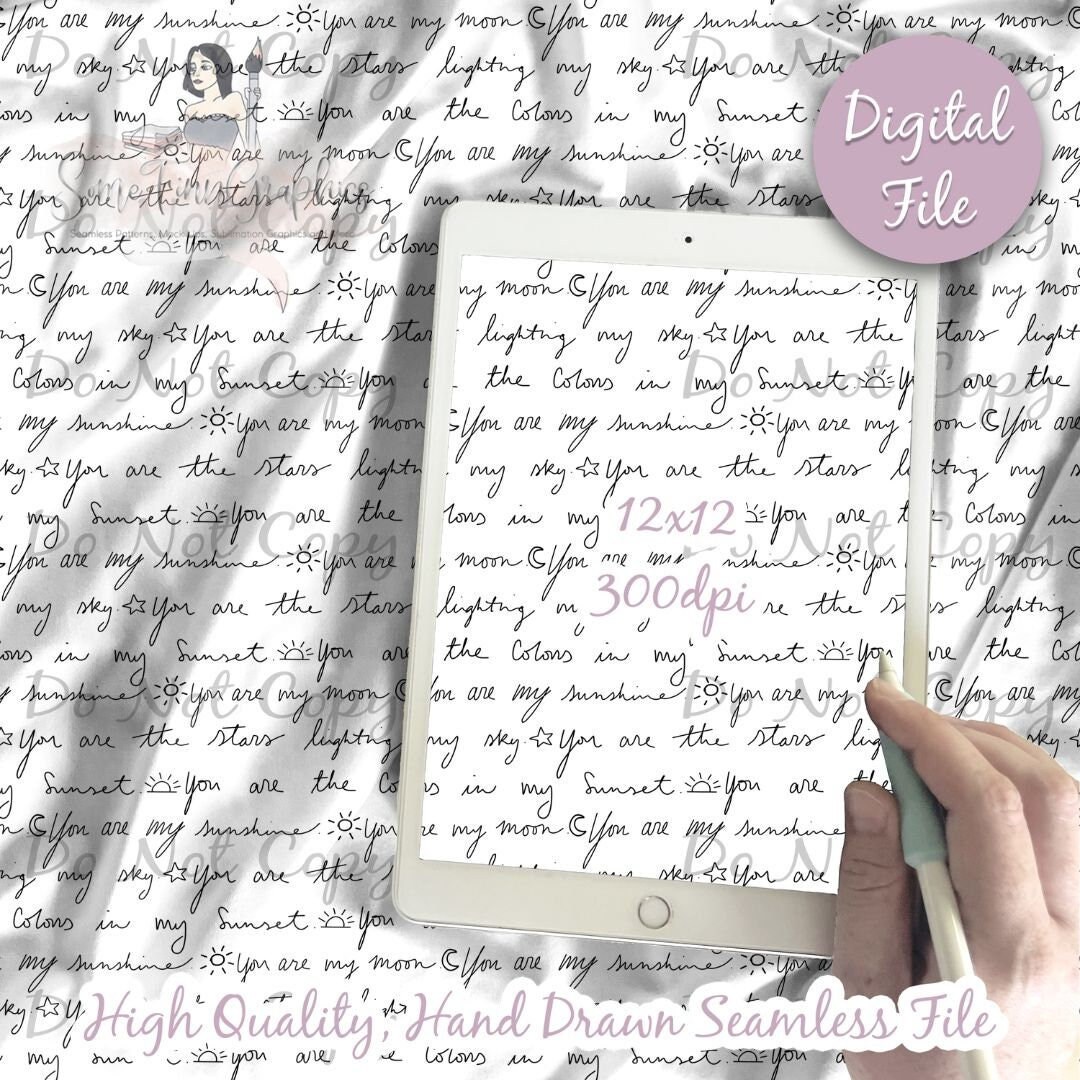 You are my sunshine. You are my moon You are my sunshine. You are my moon
my sky. You are the stars lighting my sky. You are the stars lighting
Colors in my Sunset. You are the Colors in my Sunset. You
Digital
File
my sunshine. You are my moon You are my sunshine. You are my moon
You are the stars lighting my sky. You are the
SomethingGraphics
Seamless Patterns, Mockups, Sublimation Graphics
Sunset. You are the Colors
You are my sunshine. You are my moon You are my sunshine. You are
my sky. You are the stars lighting my sky. You are the stars
Colors in my Sunset. You the Colors in my Sunset. You are the
my sunshine. You are my moon You are my sunshine. You are my moon You are
sky. You are the stars my sky. You are the stars lighting my
my Sunset. You are the in my You are the Colors in
12x12
You are my sunshine. You are my sunshine. You are my moon
300dpi
my sky. You are the stars lighting the lighting
in my Sunset. You are the Colors in my Sunset. You the
my sunshine. You are my moon You are my sunshine. You are my You are my
You are the stars lighting my sky. You are the stars
Sunset. You are the in my Sunset. You are the
You are my sunshine. You my moon You are my sunshine.
my sky. You are the my sky. You are the
Colors in my Sunset. You
my sunshine. You are my moon You are my sunshine. You are
High Quality, Hand Drawn Seamless File
my Sunset. You are the Colors in my Sunset. You are
Do Not Copy
Do Not Copy
Do Not Copy
Do Not Copy
Do Not Copy
Do Not Copy
Do Not Copy